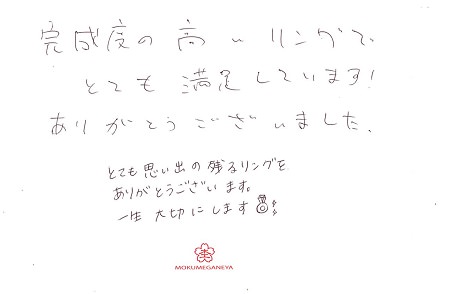 完成度の高いリングで、
とても満足しています!
ありがとうございました。
とても思い出の残るリングを
ありがとうございます。
一生大切にします
MOKUMEGANEYA